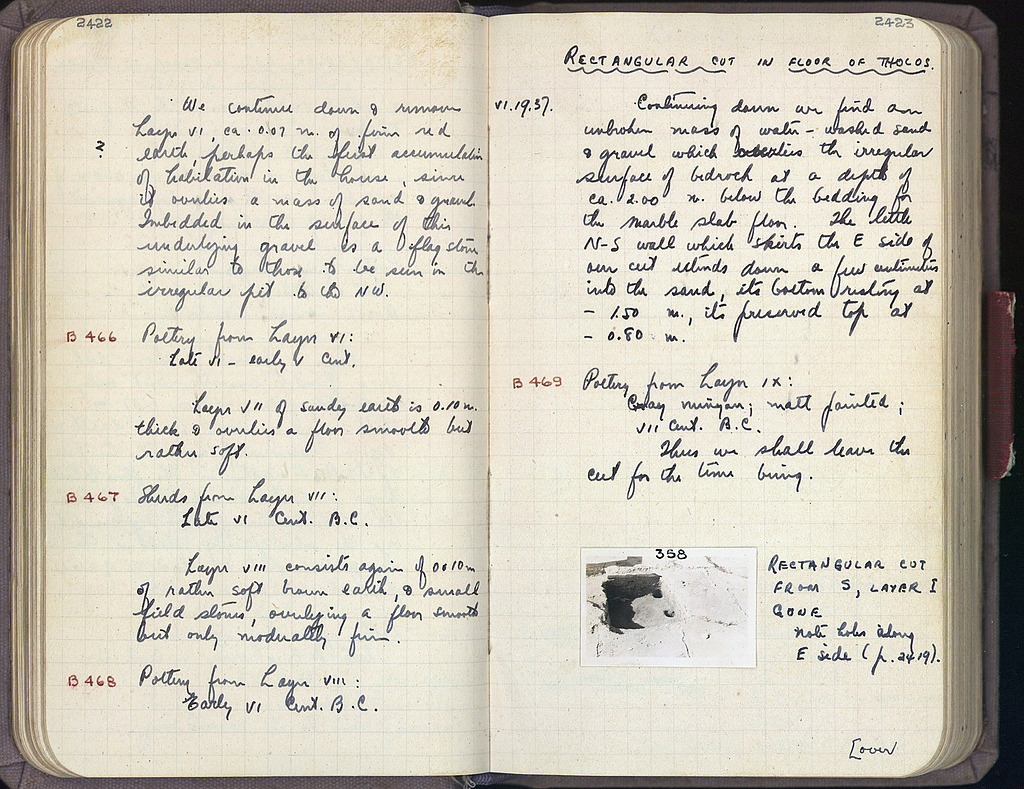 2422
We continue down & remove
Layer VI, ca. 0.07 m. of firm red
?
earth, perhaps the first accumulation
of habitation in the house, since
it overlies a mass of sand & gravel.
Imbedded in the surface of this
underlying gravel is a flagstone
similar to those to be seen in the
irregular pit to the NW.
B 466 Pottery from Layer VI:
Late VI - early V Cent.
Layer VII of sandy earth is 0.10 m.
thick & overlies a floor smooth but
rather soft.
B 467 Sherds from Layer VII:
Late VI Cent. B.C.
Layer VIII consists again of 0.10 m
of rather soft brown earth, & small
field stones, overlying a floor smooth
but only moderately firm.
B 468 Pottery from Layer VIII:
Early VI Cent. B.C.
2423
RECTANGULAR CUT IN FLOOR OF THOLOS.
VI.19.37. Continuing down we find an
unbroken mass of water-washed sand
& gravel which overlies the irregular
surface of bedrock at a depth of
ca. 2.00 m. below the bedding for
the marble slab floor. The little
N-S wall which skirts the E side of
our cut extends down a few centimetres
into the sand, its bottom resting at
- 1.50 m., its preserved top at
- 0.80 m.
B 469 Pottery from Layer IX:
Gray minyan; matt painted;
VII Cent. B.C.
Thus we shall leave the
cut for the time being.
358
RECTANGULAR CUT
FROM S, LAYER I
GONE
Note holes along
E side (p. 2419).
[over